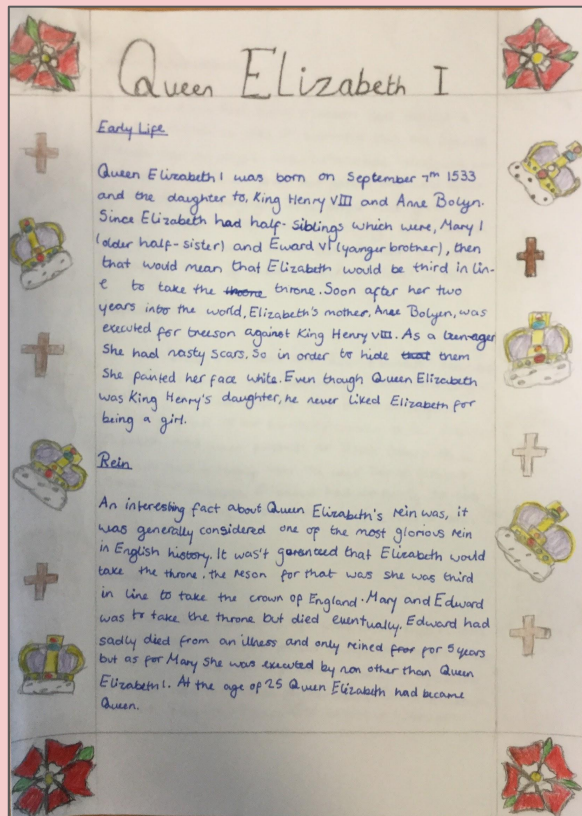 Queen Elizabeth I
Early Life
Queen Elizabeth I was born on September 7th 1533
and the daughter to, King Henry VIII and Anne Bolyn.
Since Elizabeth had half-siblings which were, Mary I
(older half-sister) and Eward VI (yanger brother), then
that would mean that Elizabeth would be third in lin-
e to take the throne throne. Soon after her two
years into the world, Elizabeth's mother, Anne Bolyen, was
executed for treeson against King Henry VIII. As a teenager
She had nasty scars. So in order to hide that them
She painted her face white. Even though Queen Elizabeth
was King Henry's daughter, he never liked Elizabeth for
being a girl.
Rein
An interesting fact about Queen Elizabeth's rein was, it
was generally considered one of the most glorious rein
in English history. It was't garenced that Elizabeth would
take the throne. the reson for that was she was third
in line to take the crown of England. Mary and Edward
was to take the throne but died eventually. Edward had
sadly died from an illness and only reined for for 5 years
but as for Mary She was executed by non other than Queen
Elizabeth I. At the age of 25 Queen Elizabeth had became
Queen.